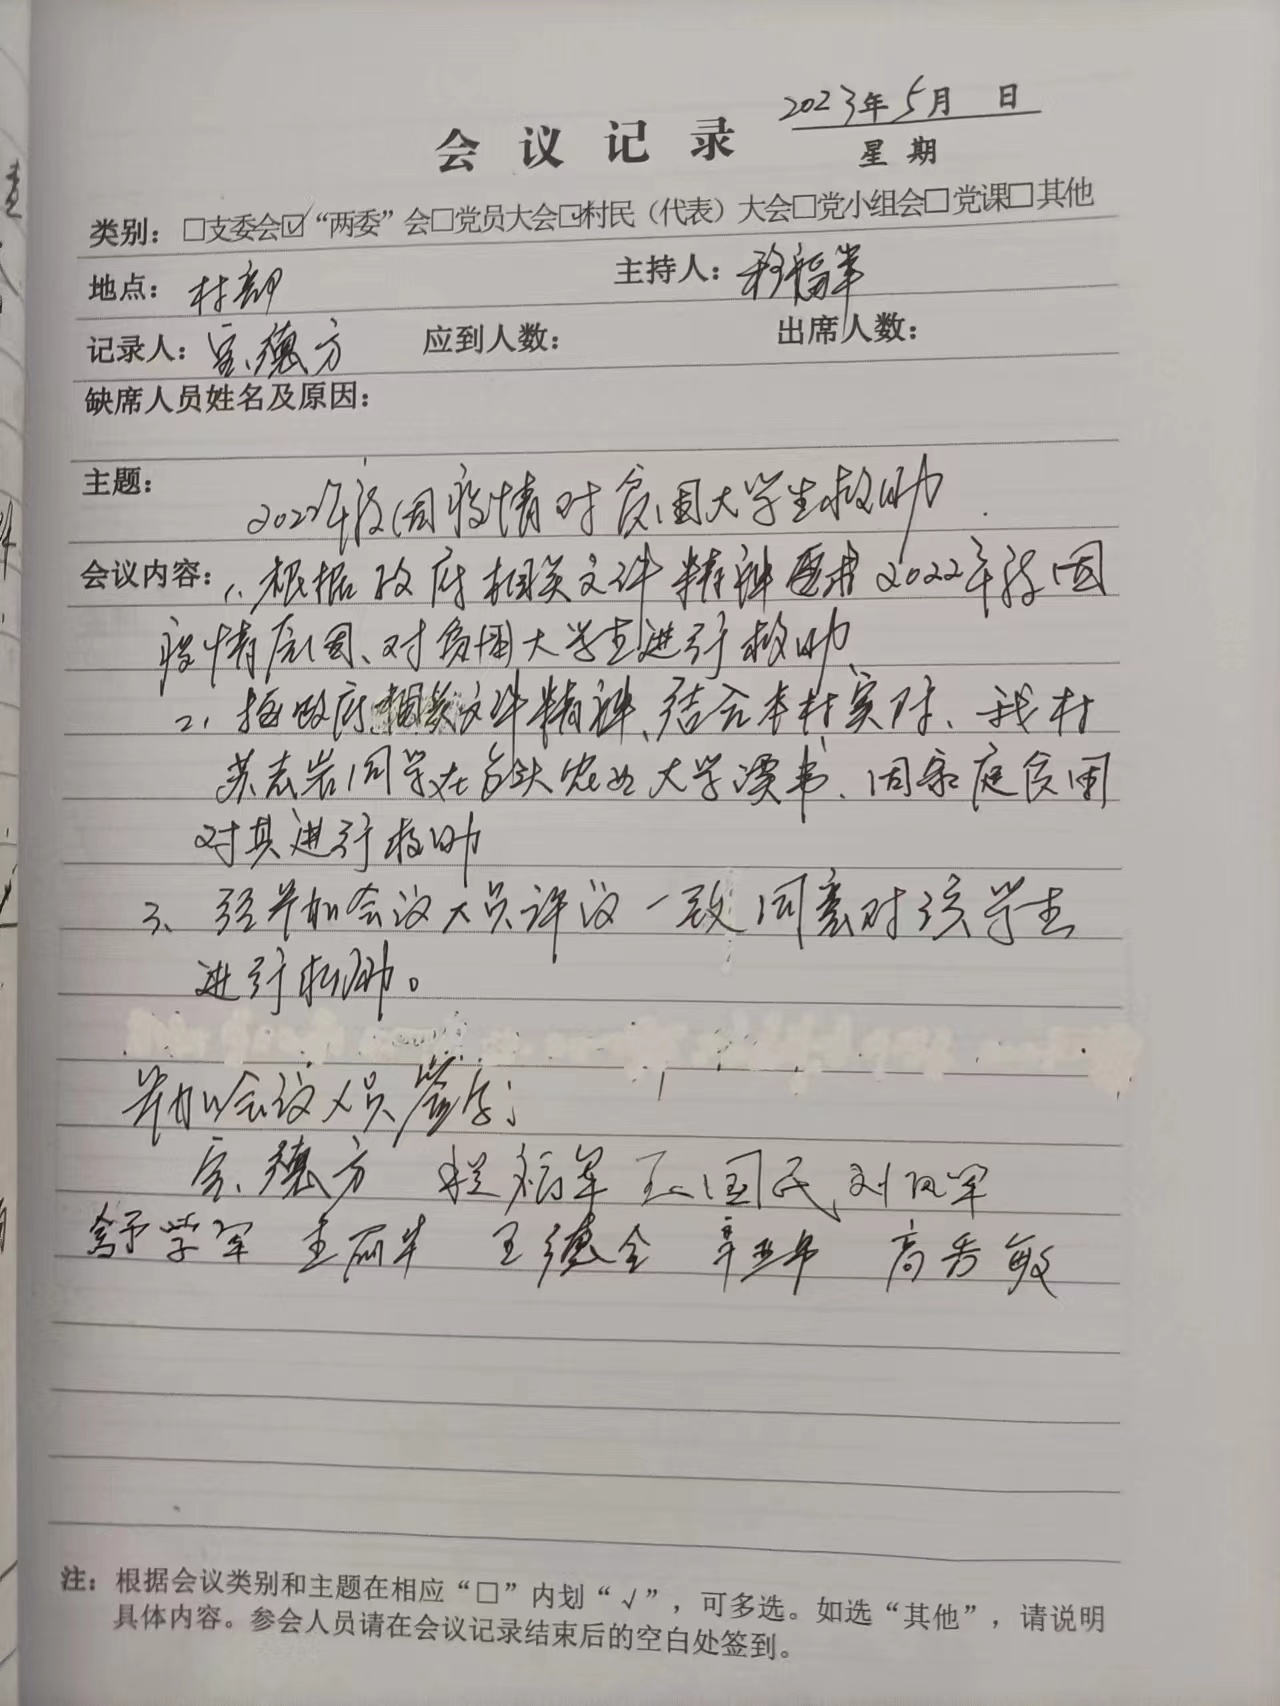 2023年5月 日
会议记录
星期
类别：□支委会☑“两委”会□党员大会☑村民（代表）大会□党小组会□党课□其他
地点：村部 主持人：程福军
记录人：宝德方 应到人数： 出席人数：
缺席人员姓名及原因：
主题：
2022年 因疫情对贫困大学生救助
会议内容：1、根据政府相关文件精神要求2022年 因
疫情 因、对贫困大学生进行救助
2、按政府相关文件精神、结合本村实际、我村
苏志岩同学在 农业大学读书、因家庭贫困
对其进行救助
3、经参加会议人员评议一致同意对该学生
进行救助。
参加会议人员签字：
宝德方 程福军 王国民 刘凤军
舒学军 王丽华 王德全 辛亚韦 高秀敏
注：根据会议类别和主题在相应“□”内划“√”，可多选。如选“其他”，请说明
具体内容。参会人员请在会议记录结束后的空白处签到。